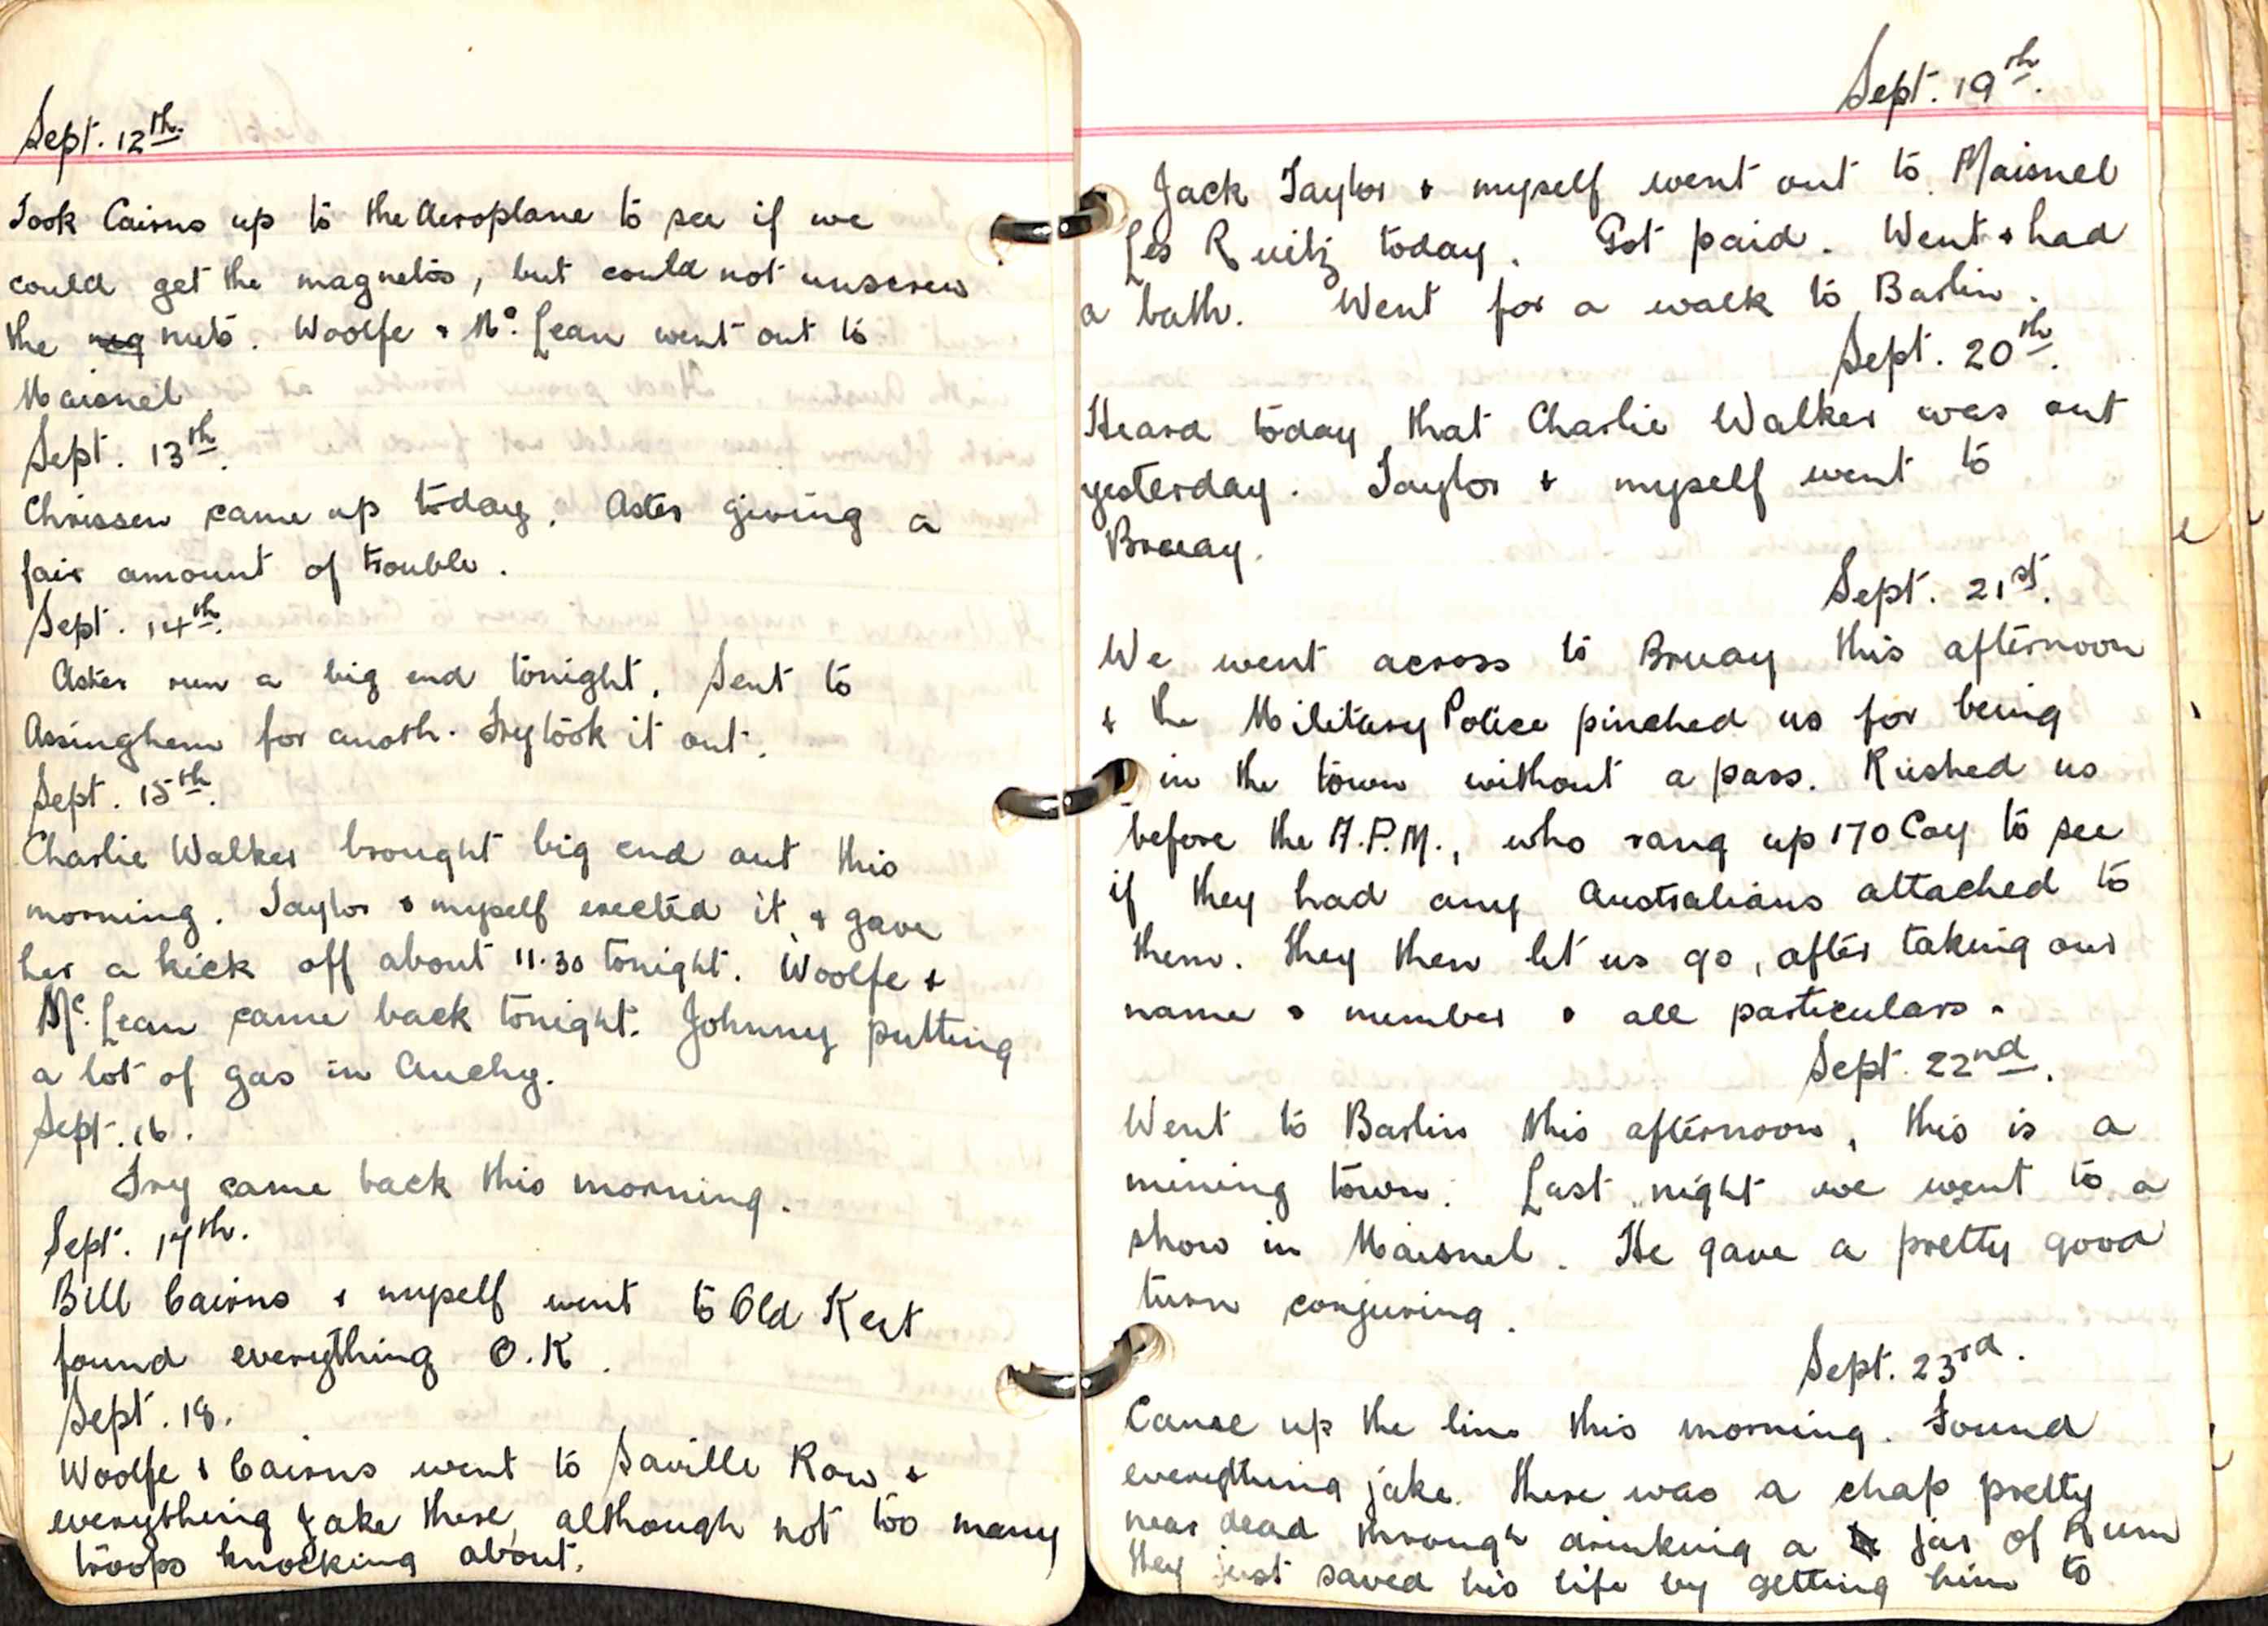 Sept. 12th.
Took Cairns up to the Aeroplane to see if we
could get the magnetos, but could not unscrew
the nuts. Woolfe & Mc. Lean went out to
Maisnel
Sept. 13th.
Chrissen came up today. Aster giving a
fair amount of trouble.
Sept. 14th.
Aster run a big end tonight. Sent to
Assinghem for anoth. Fry took it out.
Sept. 15th.
Charlie Walker brought big end out this
morning. Taylor & myself erected it, & gave
her a kick off about 11.30 tonight. Woolfe &
Mc. Lean came back tonight. Johnny putting
a lot of gas in Auchy.
Sept. 16.
Fry came back this morning.
Sept. 17th.
Bill Cairns & myself went to Old Kent
found everything O.K.
Sept. 18.
Woolfe & Cairns went to Saville Row &
everything Jake there, although not too many
troops knocking about.
Sept. 19th.
Jack Taylor & myself went out to Maisnel
Les Ruitz today. Got paid. Went & had
a bath. Went for a walk to Barlin.
Sept. 20th.
Heard today that Charlie Walker was out
yesterday. Taylor & myself went to
Bruay.
Sept. 21st.
We went across to Bruay this afternoon
& the Military Police pinched us for being
in the town without a pass. Rushed us
before the A.P.M., who rang up 170 Coy to see
if they had any Australians attached to
them. They then let us go, after taking our
name & number & all particulars.
Sept. 22nd.
Went to Barlin this afternoon, this is a
mining town. Last night we went to a
show in Maisnel. He gave a pretty good
turn conjuring.
Sept. 23rd.
Came up the line this morning. Found
everything jake. There was a chap pretty
near dead through drinking a jar of Rum
they just saved his life by getting him to